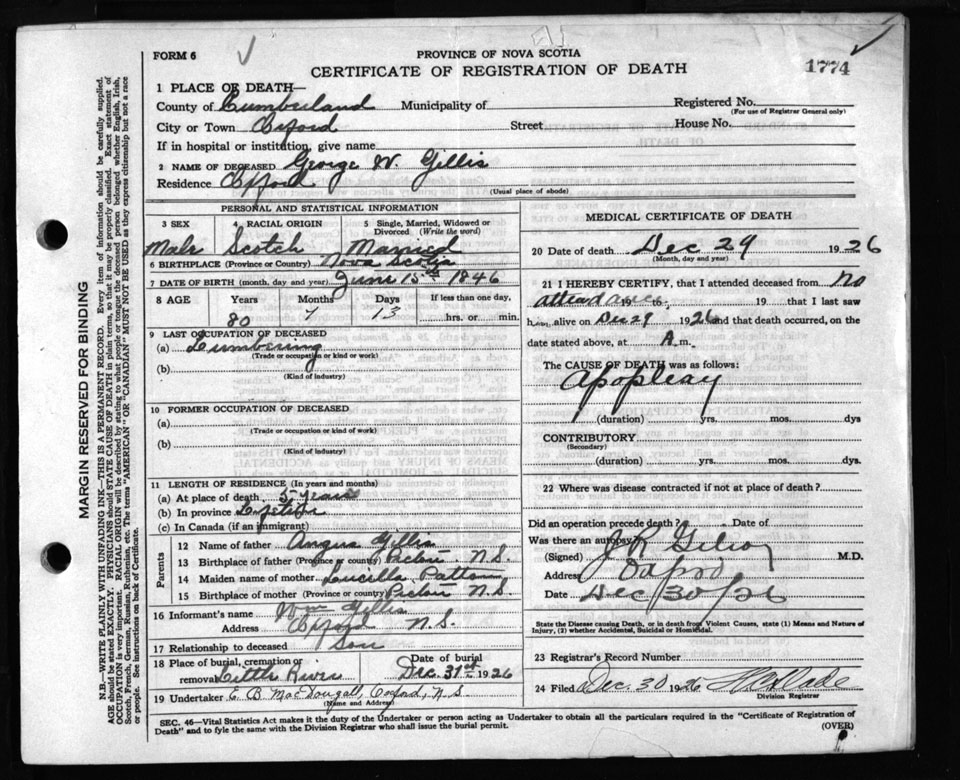 FORM 6
PROVINCE OF NOVA SCOTIA
CERTIFICATE OF REGISTRATION OF DEATH
1774
1 PLACE OF DEATH—
County of Cumberland Municipality of Registered No.
(For use of Registrar General only)
City or Town Oxford Street House No.
If in hospital or institution, give name
2 NAME OF DECEASED George W. Gillis
Residence Oxford
(Usual place of abode)
PERSONAL AND STATISTICAL INFORMATION
3 SEX 4 RACIAL ORIGIN 5 Single, Married, Widowed or Divorced (Write the word)
Male Scotch Married
6 BIRTHPLACE (Province or Country) Nova Scotia
7 DATE OF BIRTH (month, day and year) June 15th 1846
8 AGE Years Months Days If less than one day,
80 7 13 hrs. or min.
9 LAST OCCUPATION OF DECEASED
(a) Lumbering
(Trade or occupation or kind of work)
(b)
(Kind of industry)
10 FORMER OCCUPATION OF DECEASED
(a)
(Trade or occupation or kind of work)
(b)
(Kind of industry)
11 LENGTH OF RESIDENCE (In years and months)
(a) At place of death 5 years
(b) In province Lifetime
(c) In Canada (if an immigrant)
Parents
12 Name of father Angus Gillis
13 Birthplace of father (Province or country) Pictou N.S.
14 Maiden name of mother Lucilla
15 Birthplace of mother (Province or country) Pictou N.S.
16 Informant's name Wm Gillis
Address Oxford N.S.
17 Relationship to deceased Son
18 Place of burial, cremation or removal Little River Date of burial Dec. 31st 1926
19 Undertaker E. B. MacDougall, Oxford, N.S.
(Name and Address)
MEDICAL CERTIFICATE OF DEATH
20 Date of death Dec 29 1926
(Month, day and year)
21 I HEREBY CERTIFY, that I attended deceased from no
attendance, 19 to 19 that I last saw
h alive on Dec 29 1926 and that death occurred, on
date stated above, at A m.
The CAUSE OF DEATH was as follows:
Apoplexy
(duration) yrs. mos. dys
CONTRIBUTORY
(Secondary)
(duration) yrs. mos. dys.
22 Where was disease contracted if not at place of death?
Did an operation precede death? Date of
Was there an autopsy?
(Signed) M.D.
Address Oxford
Date Dec 30/26
State the Disease causing Death, or in death from Violent Causes, state (1) Means and Nature of
Injury, (2) whether Accidental, Suicidal or Homicidal.
23 Registrar's Record Number
24 Filed Dec. 30 1926
Division Registrar
SEC. 46—Vital Statistics Act makes it the duty of the Undertaker or person acting as Undertaker to obtain all the particulars required in the "Certificate of Registration of
Death" and to fyle the same with the Division Registrar who shall issue the burial permit. (OVER)
MARGIN RESERVED FOR BINDING
N.B.—WRITE PLAINLY WITH UNFADING INK—THIS IS A PERMANENT RECORD. Every item of information should be carefully supplied.
AGE should be stated EXACTLY. PHYSICIANS should STATE CAUSE OF DEATH in plain terms, so that it may be properly classified. Exact statement of
OCCUPATION is very important. RACIAL ORIGIN will be described by stating to what people or tongue the deceased person belonged whether English, Irish,
Scotch, French, German, Russian, Ruthenian, etc. The terms "AMERICAN" OR "CANADIAN" MUST NOT BE USED as they express citizenship but not a race
or people. See instructions on back of Certificate.